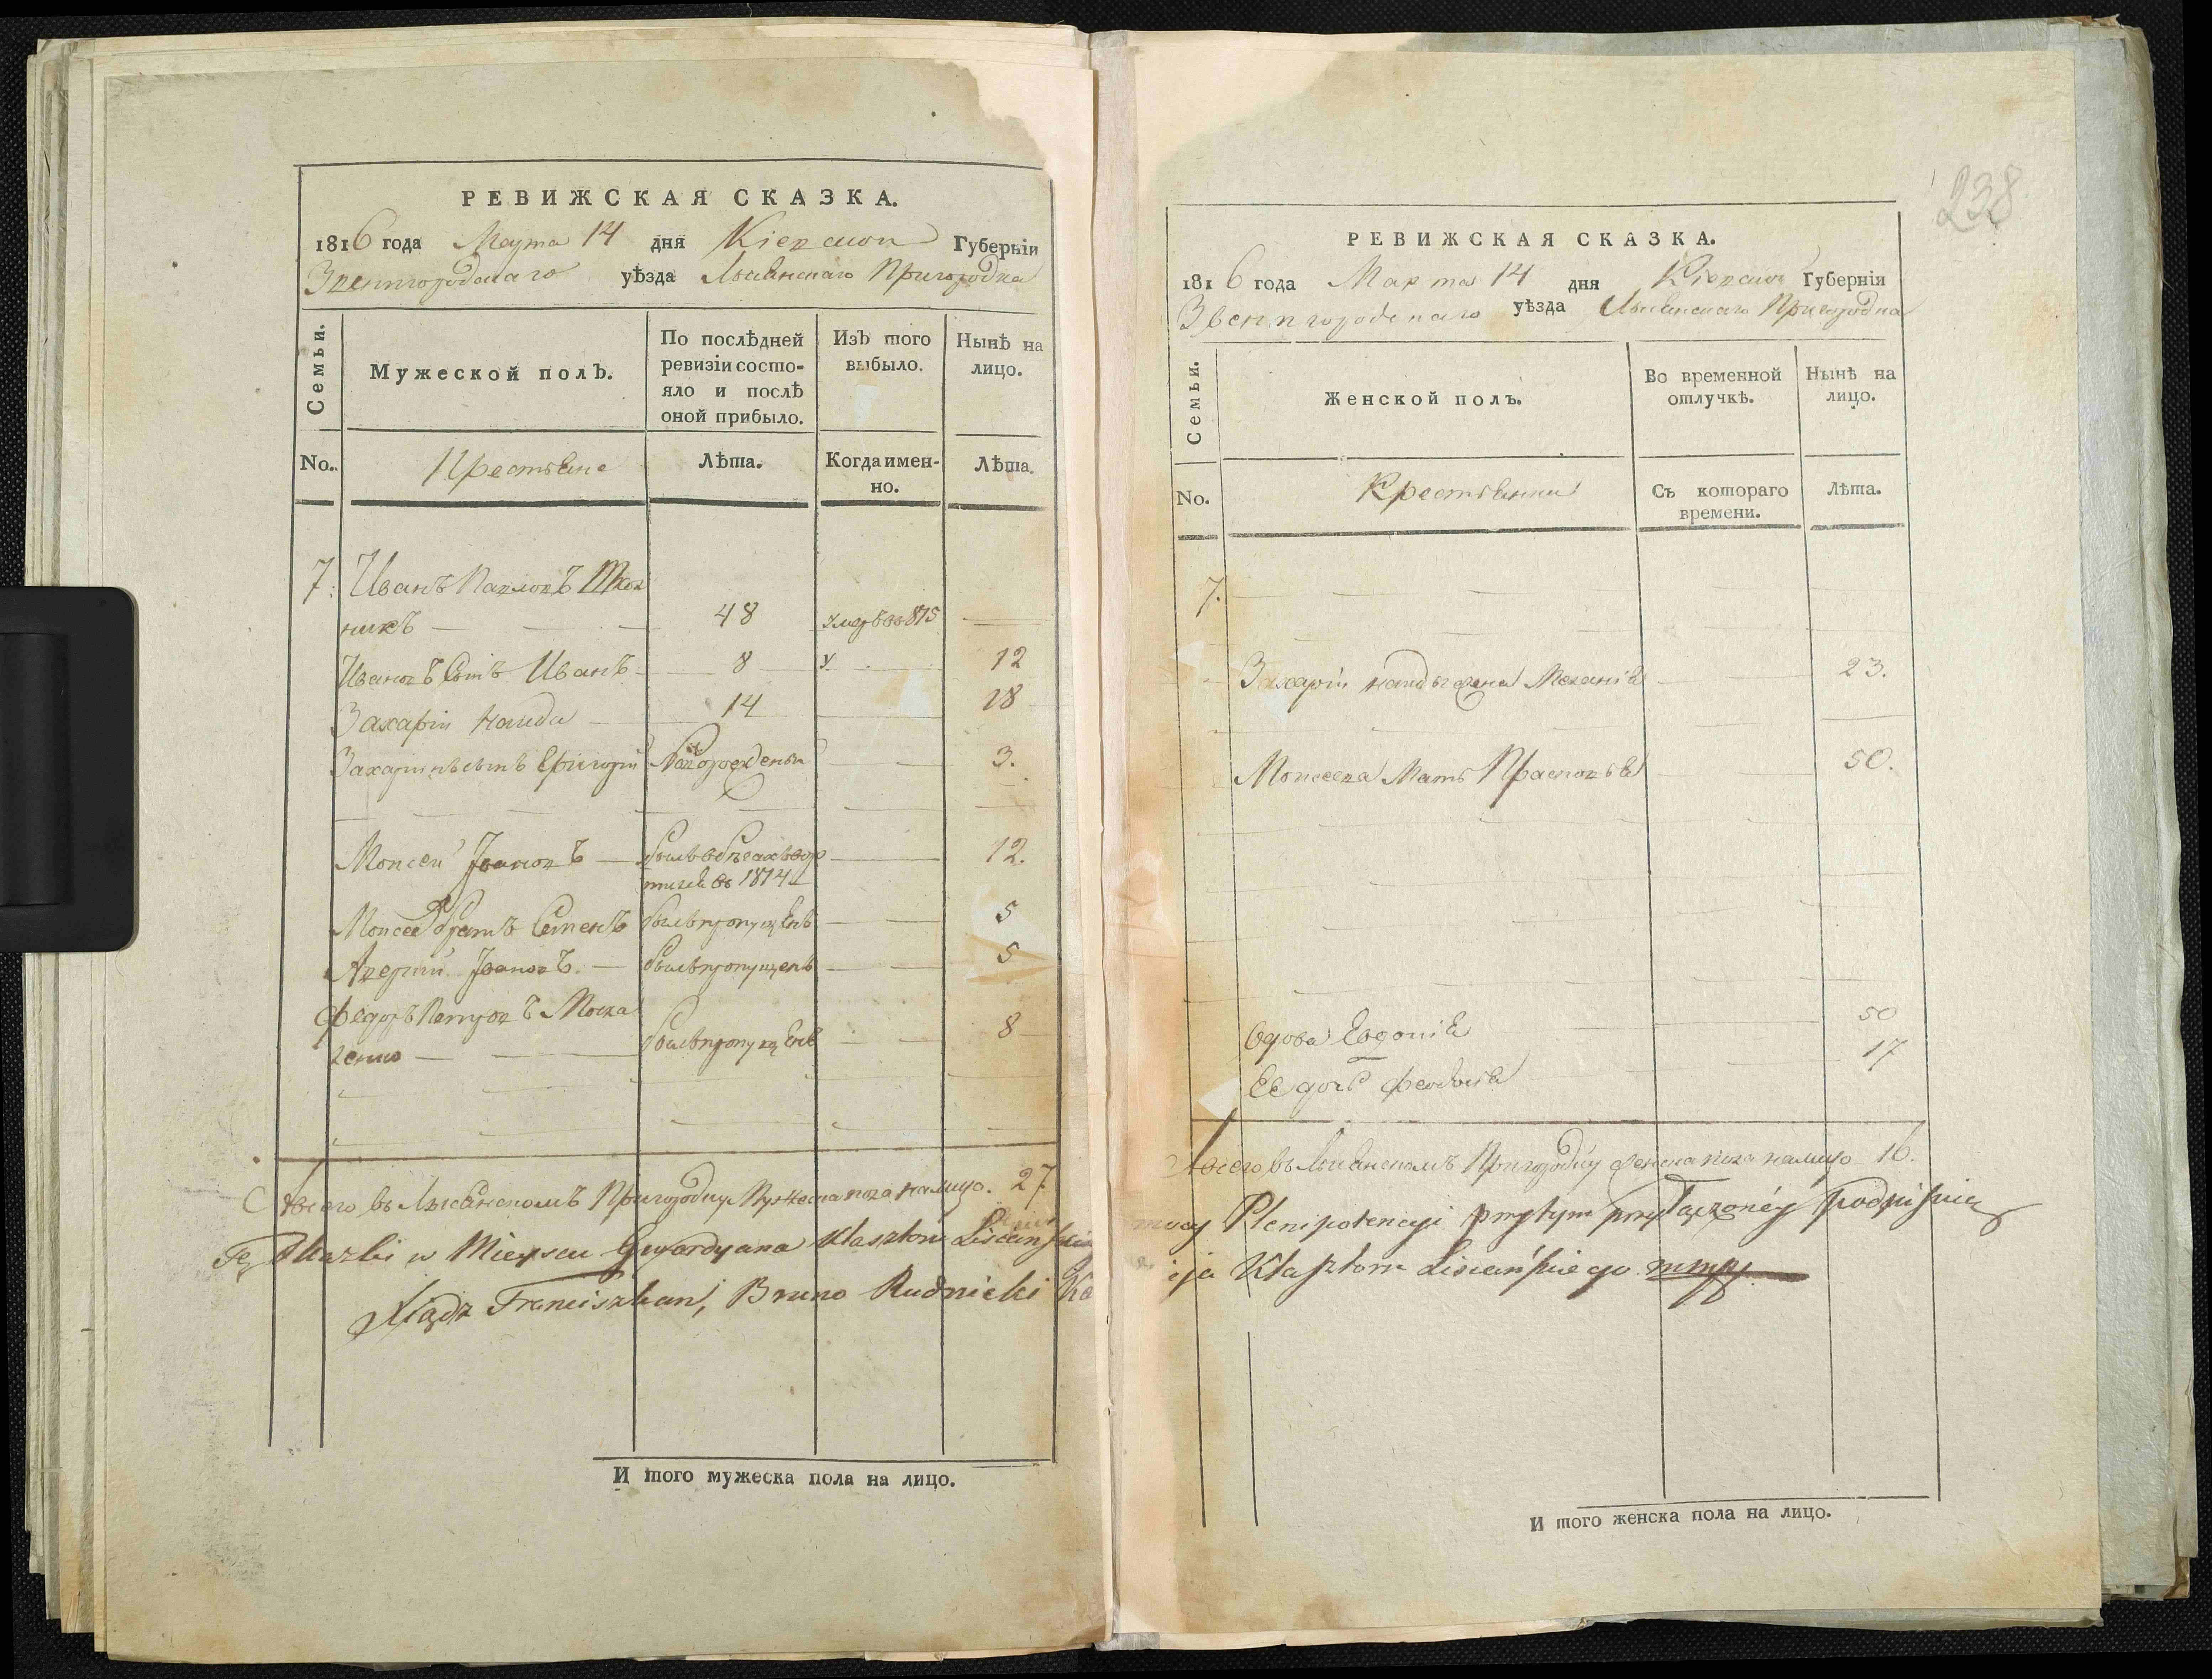 РЕВИЖСКАЯ СКАЗКА.
1816 года Марта 14 дня Кіевской Губерніи
Звенигородскаго уѣзда Лысянскаго Пригородка
Семьи.
Мужеской полЪ.
По послѣдней ревизіи состо-
яло и послѣ
оной прибыло.
ИзЪ того
выбыло.
НынѣЪ на
лицо.
No.
Крестьяне
Лѣта.
Когда имен-
но.
Лѣта.
7. Иванъ Павловъ
никъ — 48 умеръ въ 815 —
Ивановъ Сынъ Иванъ 8 12
Захарій Канда 14 18
Захаріевъ сынъ Григорій Новорожденъ 3.
Моисей Ивановъ — 12.
въ 1814
Моисея братъ Семенъ былъ пропущенъ 5
Аверкій Ивановъ — былъ пропущенъ 5
Федоръ Петровъ Моска
ленко — былъ пропущенъ 8
Всего въ Лысянскомъ Пригородку Мужеска пола налицо. 27
Tę Skazkę w Mieyscu Gwardyana Klasztoru Lisiańskiego
Xiądz Franciszkan, Bruno Rudnicki
И того мужеска пола на лицо.
238
РЕВИЖСКАЯ СКАЗКА.
1816 года Марта 14 дня Кіевской Губернія
Звенигородскаго уѣзда Лысянскаго Пригородка
Семьи.
Женской полъ.
Во временной
отлучкѣ.
Нынѣ на
лицо.
No.
Крестьянки
Съ котораго
времени.
Лѣта.
7.
Захарія Канды жена Меланія 23.
Моисеева Мать Прасковья 50.
Вдова Евдокія 50
Ее дочь Феодосія 17
Всего въ Лысянскомъ Пригородку женска пола налицо 16.
mocy Plenipotencyi przytym przyłączoney podpisuię
Klasztoru Lisiańskiego mmp
И того женска пола на лицо.